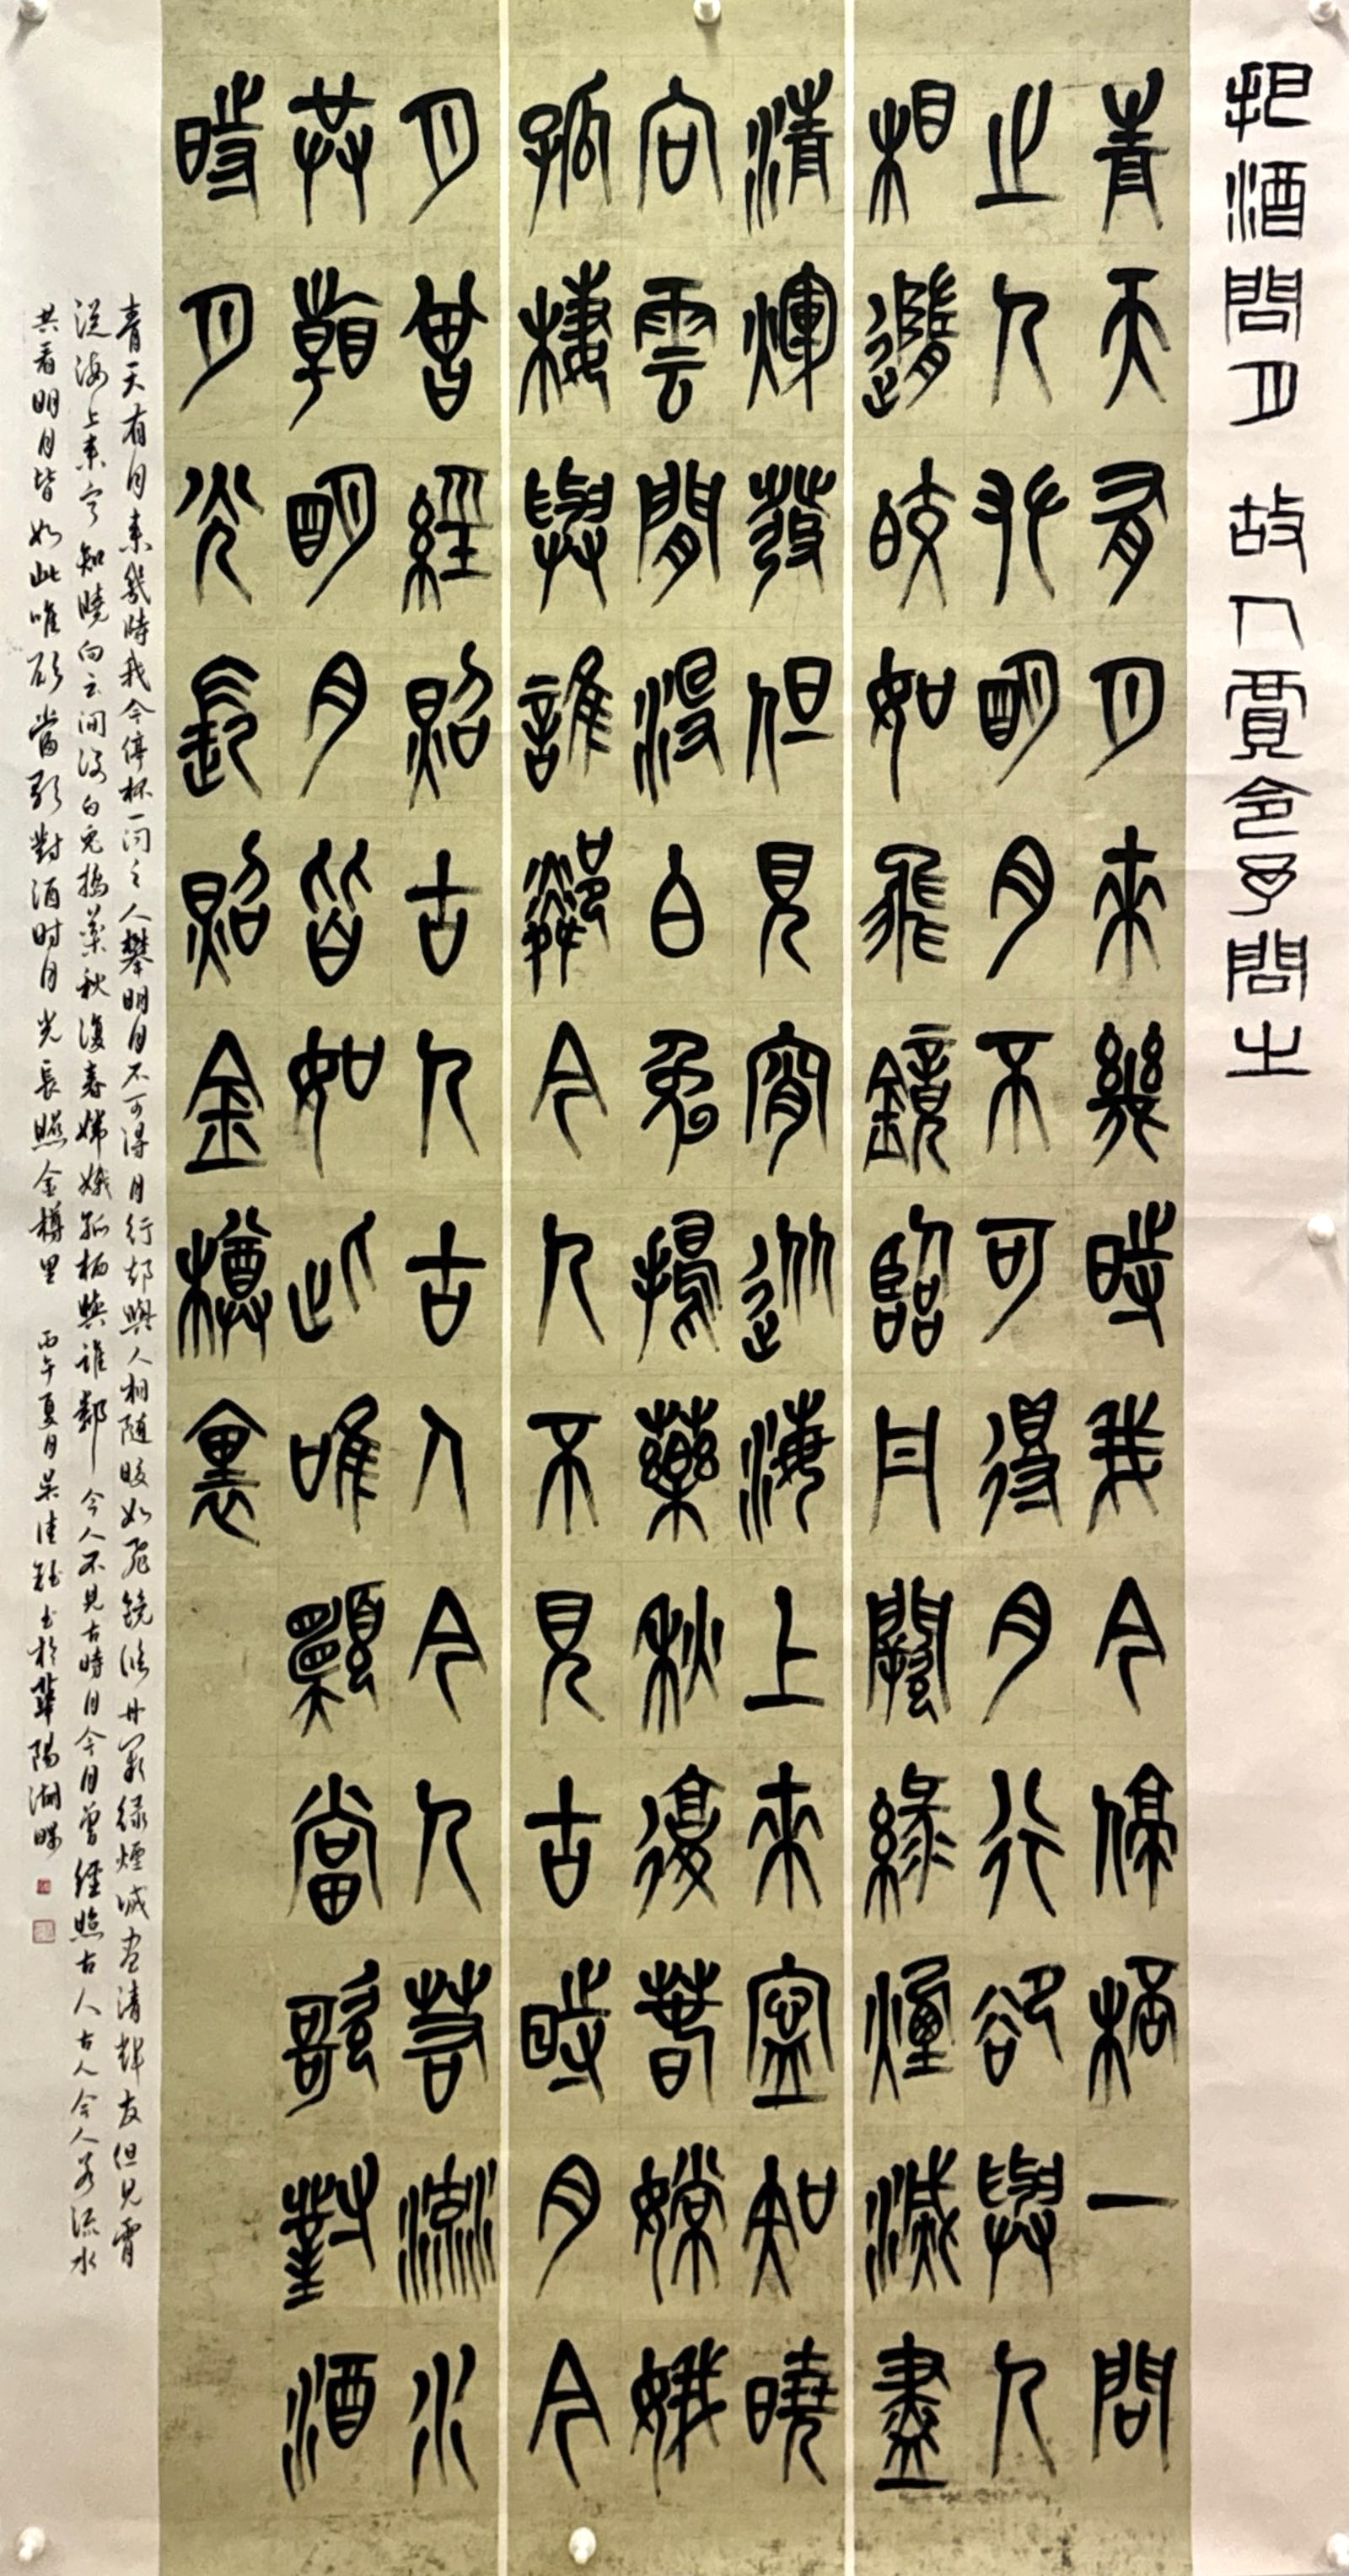 把酒問月 故人賈令予問之
青天有月來幾時我今停桮一問
之人攀明月不可得月行卻與人
相隨皎如飛鏡臨丹闕綠煙滅盡
清煇發但見宵從海上來寧知曉
向雲間沒白兔擣藥秋復春嫦娥
孤棲與誰鄰今人不見古時月今
月曾經照古人古人今人若流水
共看明月皆如此唯願當歌對酒
時月光長照金樽裏
青天有月来幾時我今停杯一问之人攀明月不可得月行却與人相随皎如飛镜临丹阙绿煙滅盡清輝发但见宵
從海上来宁知曉向云间没白兔捣藥秋復春嫦娥孤栖與谁鄰今人不見古時月今月曾經照古人古人今人若流水
共看明月皆如此唯願當歌對酒时月光長照金樽里 丙午夏月吴佳书於華陽湖畔